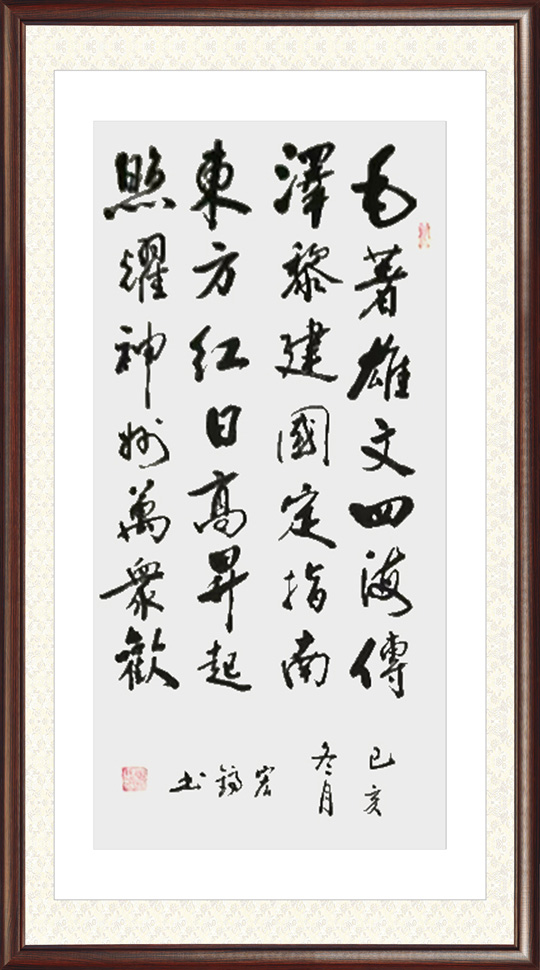 毛著雄文四海傳
澤黎建國定指南
東方紅日高昇起
照耀神州萬衆歡
己亥
冬月
書